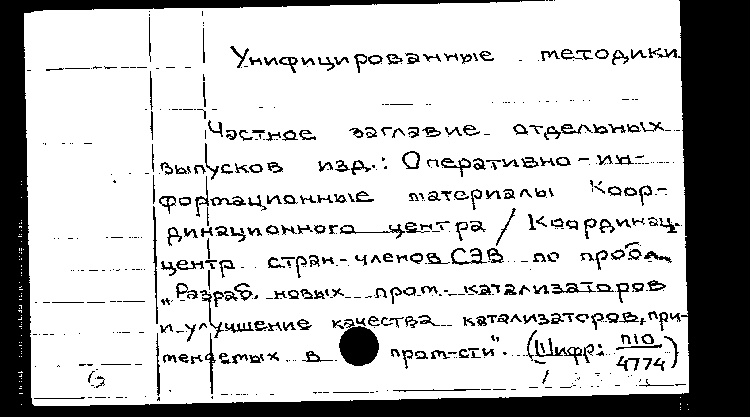 Унифицированные методики.
Частное заглавие отдельных
выпусков изд.: Оперативно-ин-
формационные материалы Коор-
динационного центра / Координац.
центр стран-членов СЭВ по пробл.
„Разраб. новых пром. катализаторов
и улучшение качества катализаторов, при-
меняемых в пром-сти". (Шифр: П10/4774)